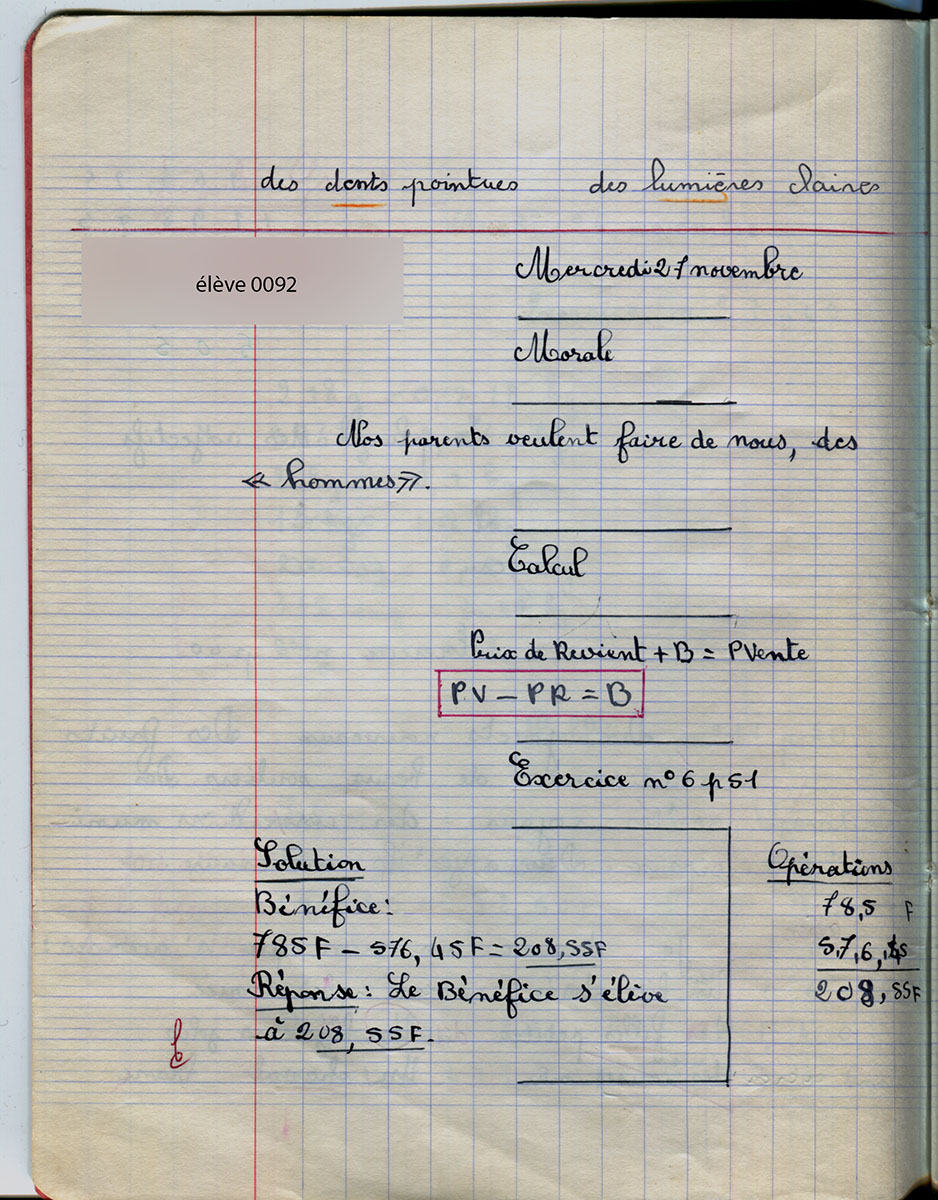 des dents pointues des lumières claires
élève 0092
Mercredi 27 novembre
Morale
Nos parents veulent faire de nous, des
« hommes ».
Calcul
Prix de Revient + B = PVente
PV - PR = B
Exercice n° 6 p 51
Solution
Bénéfice:
785F - 576,45F = 208,55F
Réponse: Le Bénéfice s'élève
à 208,55F.
Opérations
78,5 F
5,7,6,45
208,55F